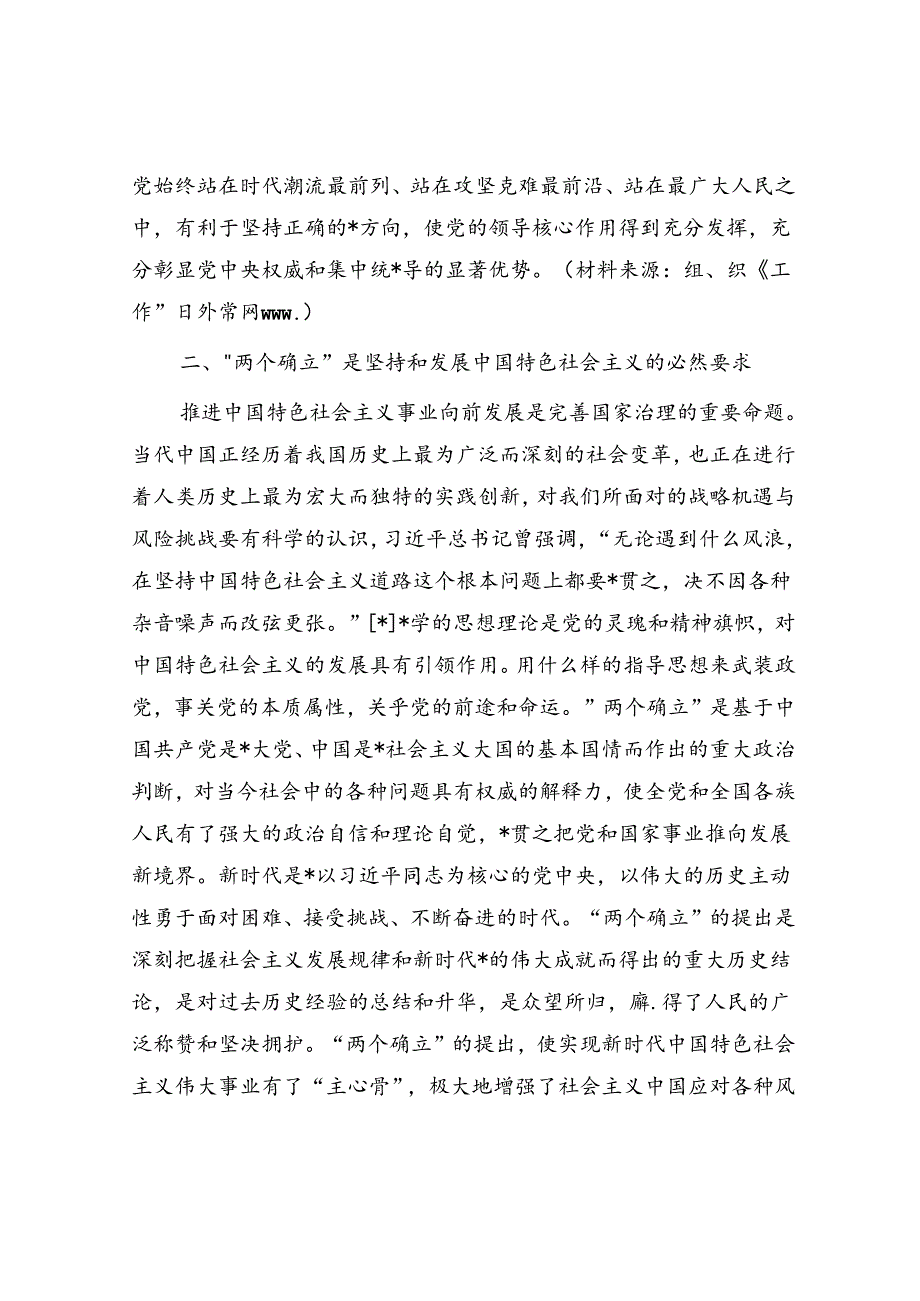 党始终站在时代潮流最前列、站在攻坚克难最前沿、站在最广大人民之
中，有利于坚持正确的*方向，使党的领导核心作用得到充分发挥，充
分彰显党中央权威和集中统*导的显著优势。（材料来源：组、织《工
作”日外常网www.）
二、"两个确立”是坚持和发展中国特色社会主义的必然要求
推进中国特色社会主义事业向前发展是完善国家治理的重要命题。
当代中国正经历着我国历史上最为广泛而深刻的社会变革，也正在进行
着人类历史上最为宏大而独特的实践创新，对我们所面对的战略机遇与
风险挑战要有科学的认识，习近平总书记曾强调，“无论遇到什么风浪，
在坚持中国特色社会主义道路这个根本问题上都要*贯之，决不因各种
杂音噪声而改弦更张。”[*]*学的思想理论是党的灵魂和精神旗帜，对
中国特色社会主义的发展具有引领作用。用什么样的指导思想来武装政
党，事关党的本质属性，关乎党的前途和命运。”两个确立”是基于中
国共产党是*大党、中国是*社会主义大国的基本国情而作出的重大政治
判断，对当今社会中的各种问题具有权威的解释力，使全党和全国各族
人民有了强大的政治自信和理论自觉，*贯之把党和国家事业推向发展
新境界。新时代是*以习近平同志为核心的党中央，以伟大的历史主动
性勇于面对困难、接受挑战、不断奋进的时代。“两个确立”的提出是
深刻把握社会主义发展规律和新时代*的伟大成就而得出的重大历史结
论，是对过去历史经验的总结和升华，是众望所归，廨.得了人民的广
泛称赞和坚决拥护。“两个确立”的提出，使实现新时代中国特色社会
主义伟大事业有了“主心骨”，极大地增强了社会主义中国应对各种风